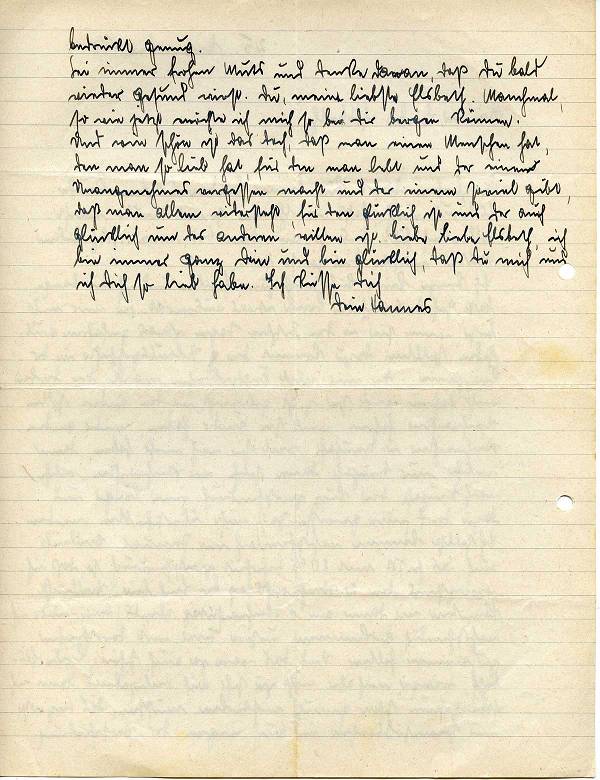 bedrückt genug.
Sei immer frohen Muts und denke daran, daß du bald
wieder gesund wirst. Du, meine liebste Elsbeth. Manchmal,
so wie jetzt möchte ich mich so bei dir bergen können.
Und wie schön ist das doch, daß man einen Menschen hat,
den man so lieb hat, für den man lebt und der einem
Unangenehmes vergessen macht und der einem soviel gibt,
daß man allem widersteht, für den glücklich ist und der auch
glücklich um des anderen willen ist. Liebe liebe Elsbeth, ich
bin immer ganz dein und bin glücklich, daß du mich und
ich dich so lieb habe. Ich küsse dich
Dein Hannes